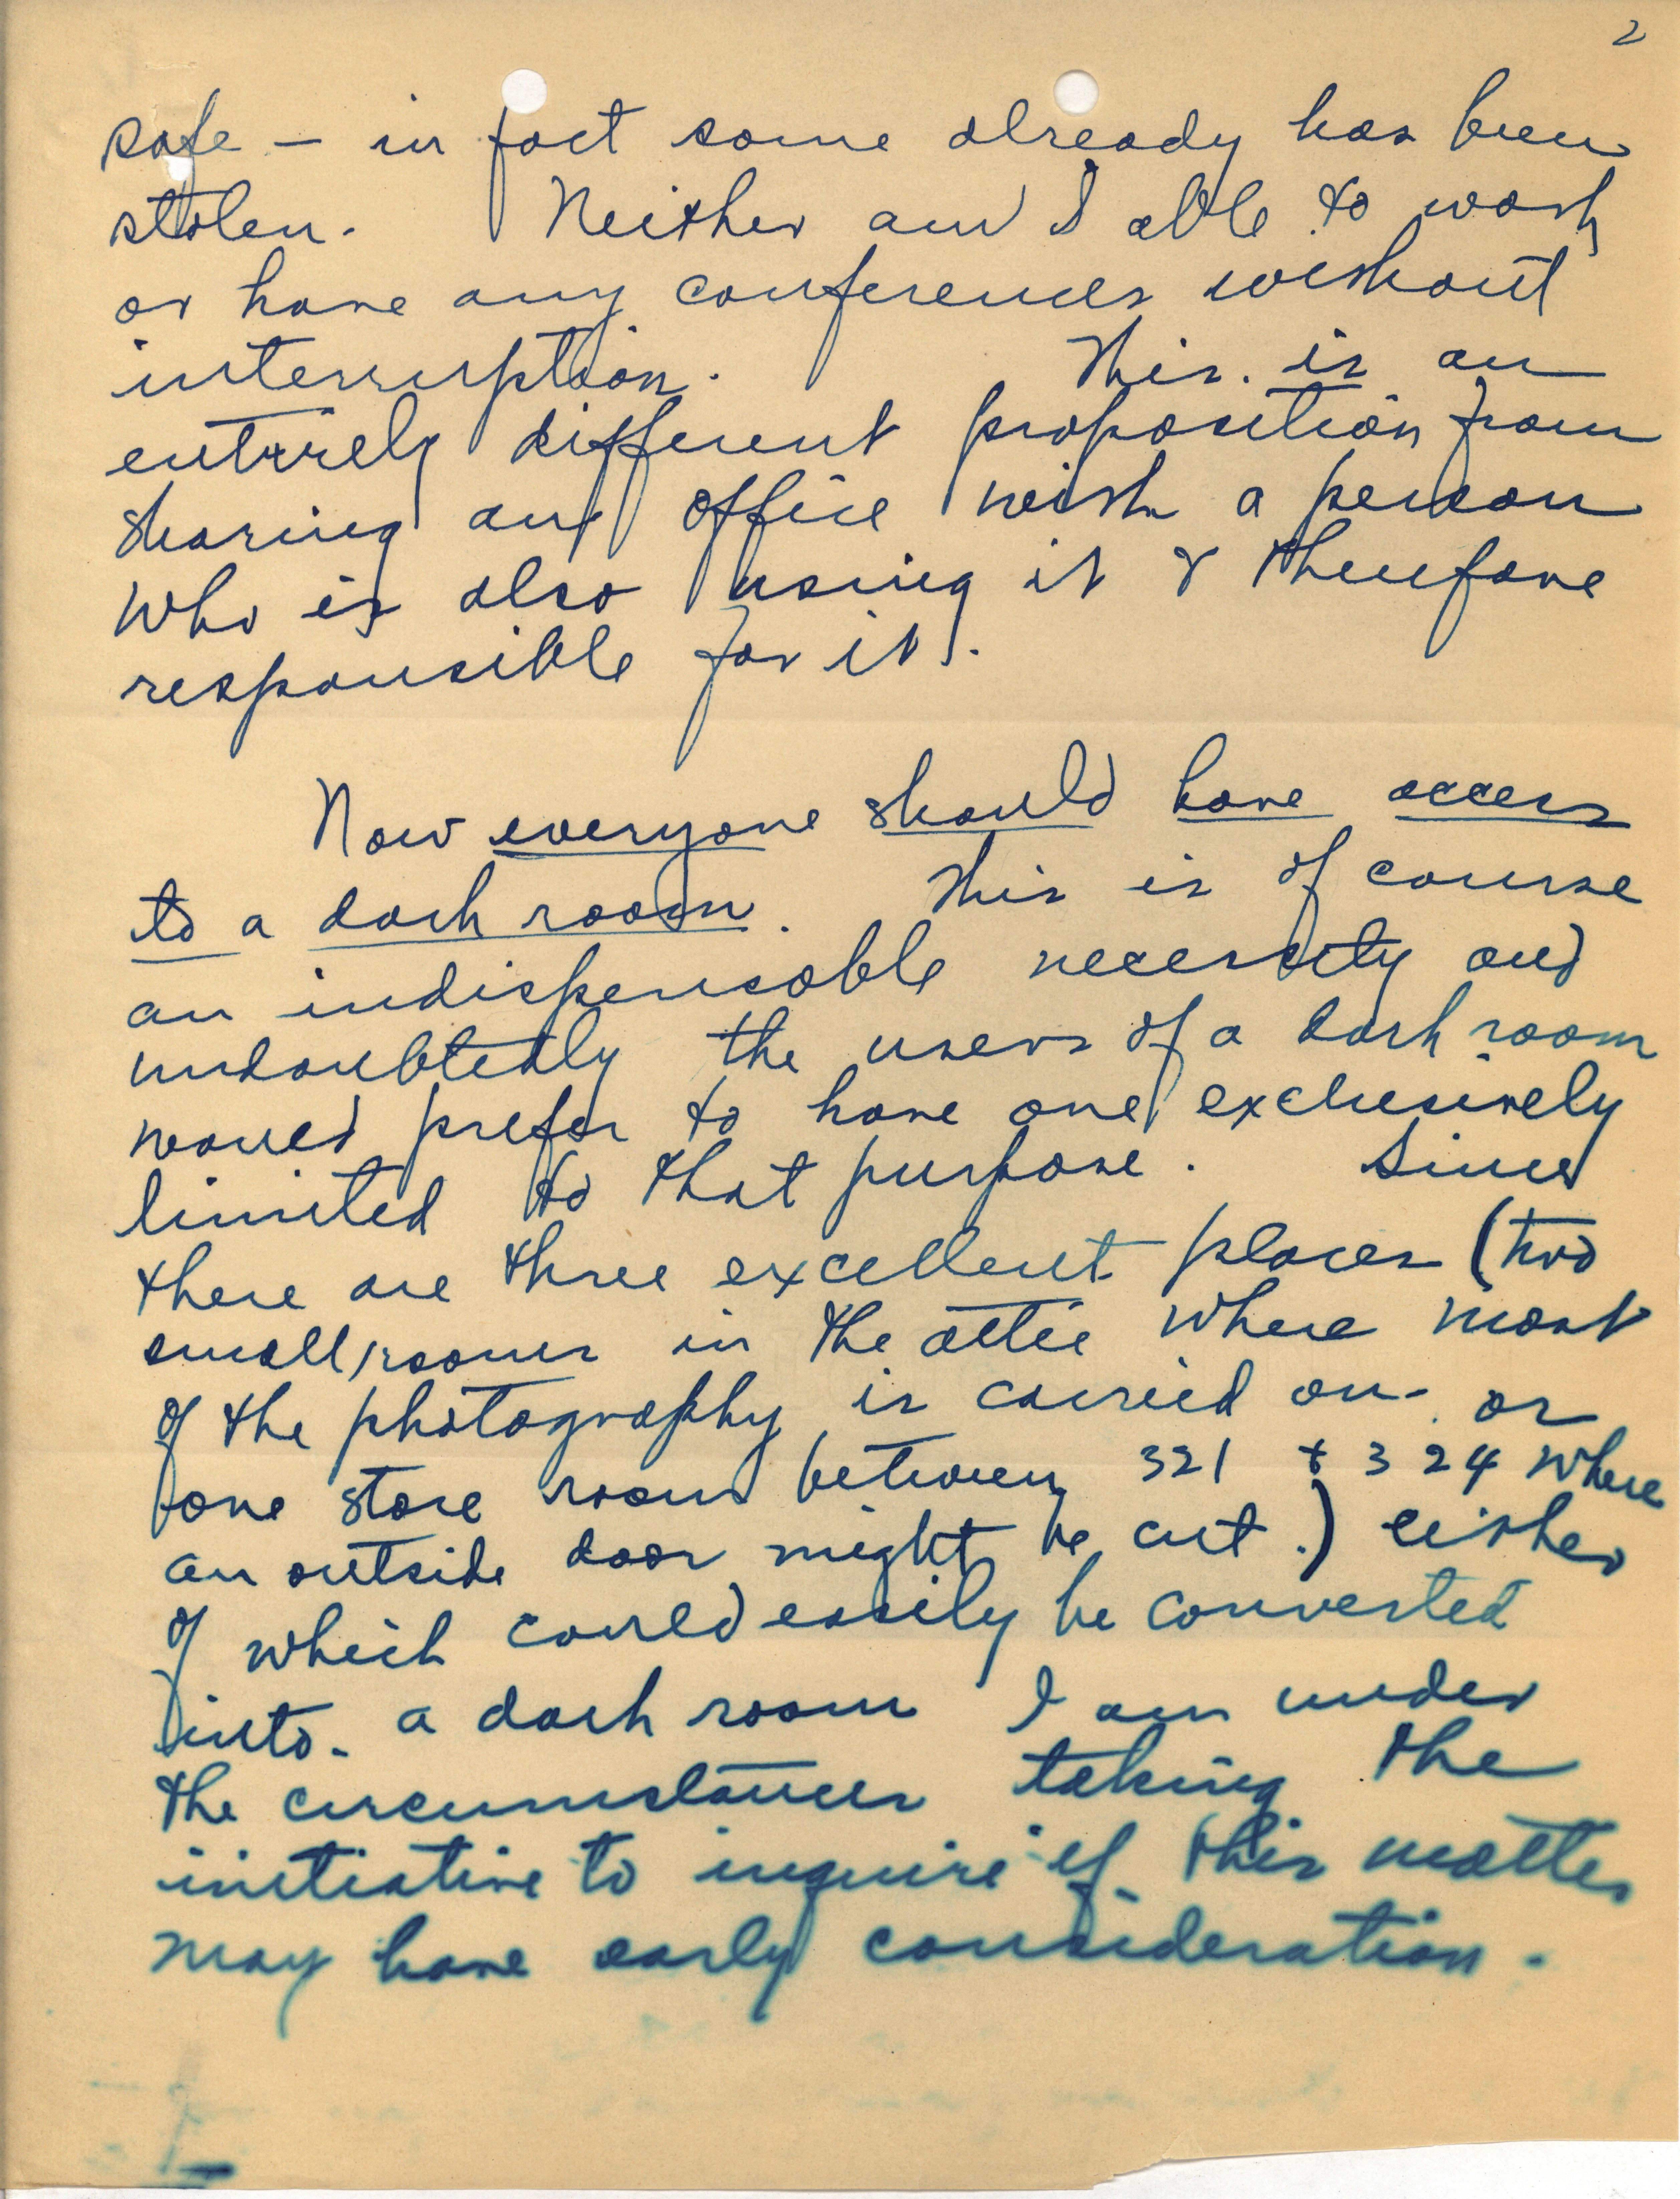 2
safe – in fact some already has been
stolen. Neither am I able to work
or have any conferences without
interruption. This is an
entirely different proposition from
sharing an office with a person
who is also using it & therefore
responsible for it.
Now everyone should have access
to a dark room. This is of course
an indispensable necessity and
undoubtedly the users of a dark room
would prefer to have one exclusively
limited to that purpose. Since
there are three excellent places (two
small rooms in the attic where most
of the photography is carried on - or
one store room between 321 & 324 where
an outside door might be cut.) either
of which could easily be converted
into a dark room I am under
the circumstances taking the
initiative to inquire if this matter
may have early consideration.